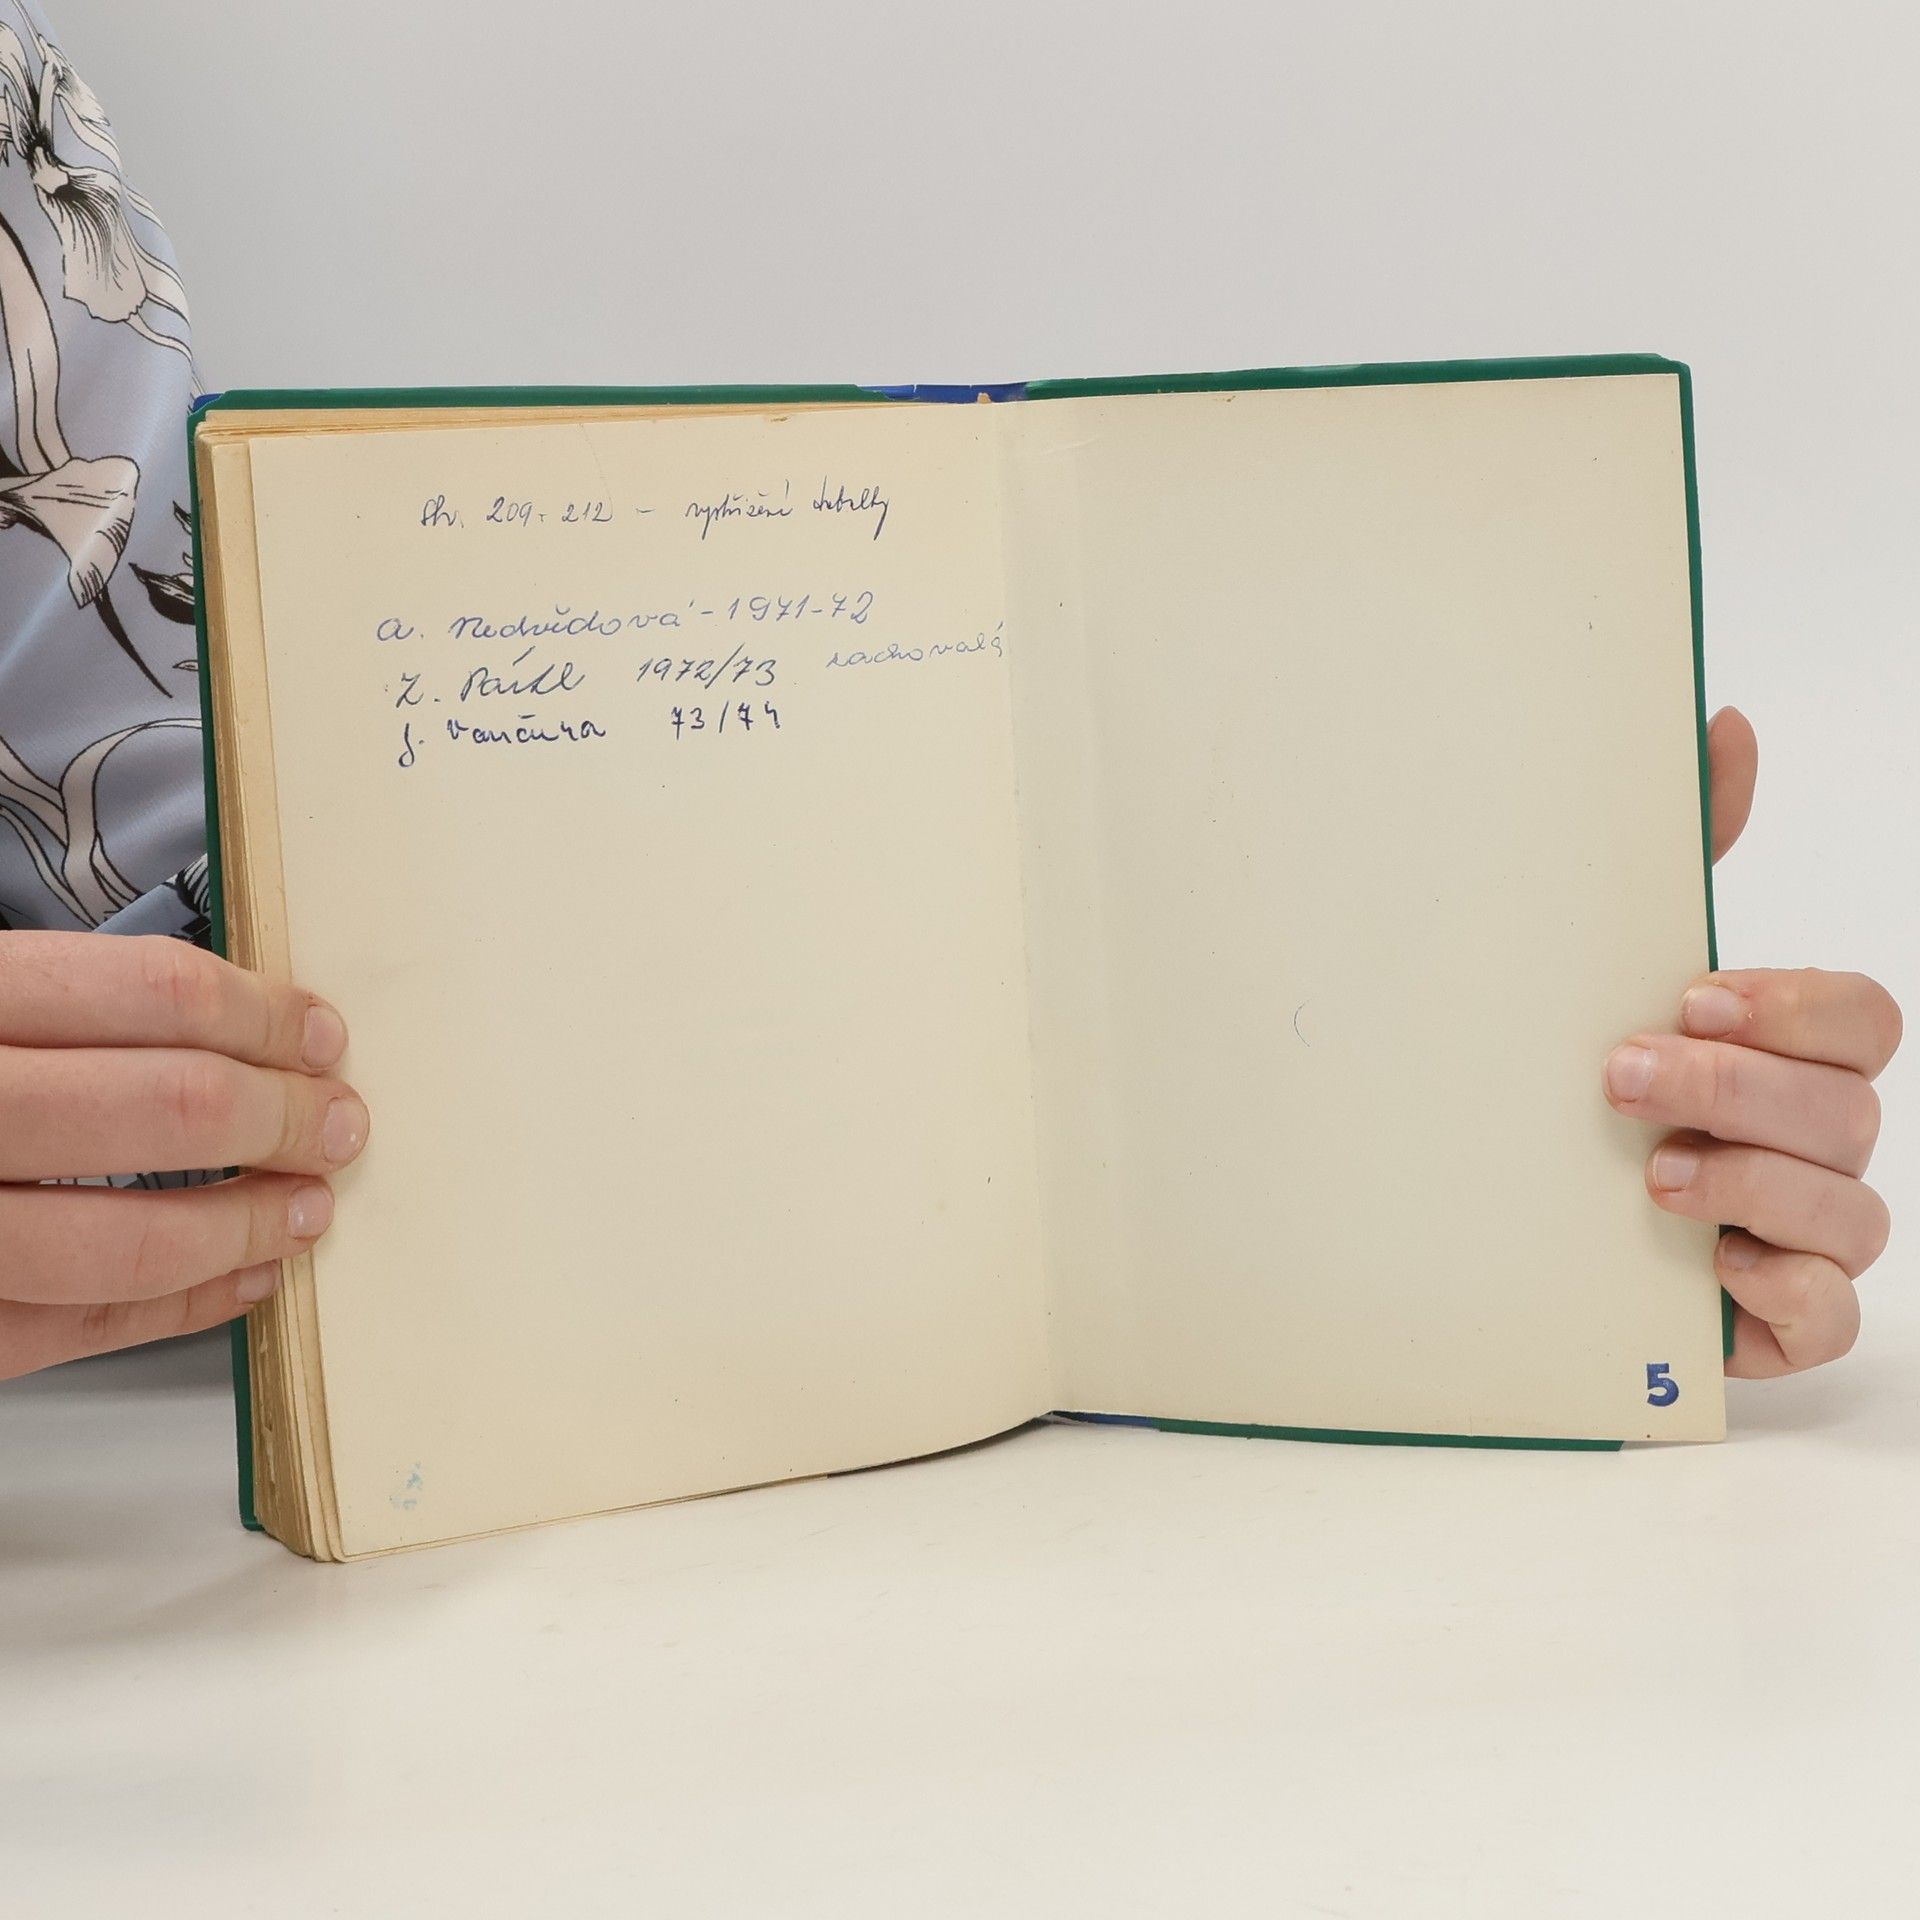 Str. 209-212 - vystřižení tabulky
A. Nedvědová - 1971-72
zachovalá
Z. 1972/73
J. Vančura 73/74
5